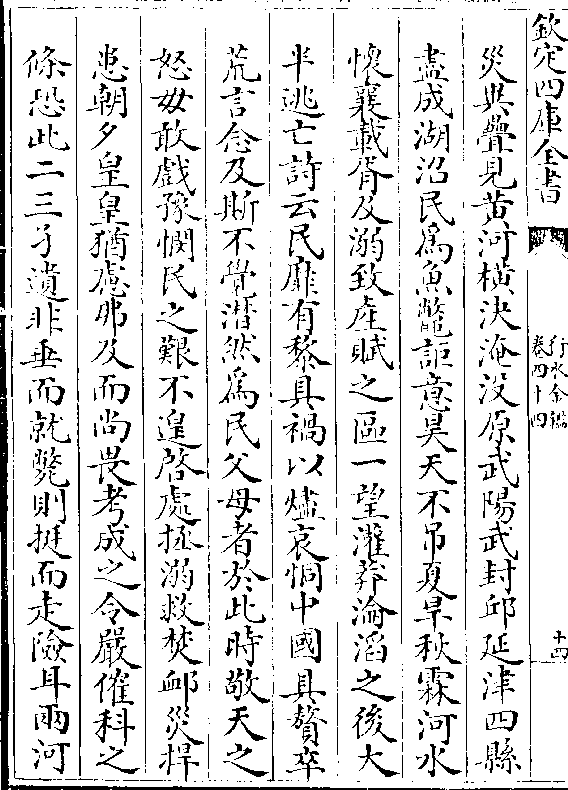 欽定四庫全書
行水金鑑
卷四十四
十四
災異疊見黃河橫決淹没原武陽武封邱延津四縣
盡成湖沼民為魚鼈詎意昊天不吊夏旱秋霖河水
懷襄載胥及溺致産賦之區一望灌莽淪滔之後大
半逃亡詩云民靡有黎具禍以燼哀恫中國具贅卒
荒言念及斯不覺潸然為民父母者於此時敬天之
怒毋敢戲豫憫民之艱不遑啓處拯溺救焚䘏災捍
患朝夕皇皇猶慮弗及而尚畏考成之令嚴催科之
條恐此二三孑遺非垂而就斃則挺而走險耳兩河